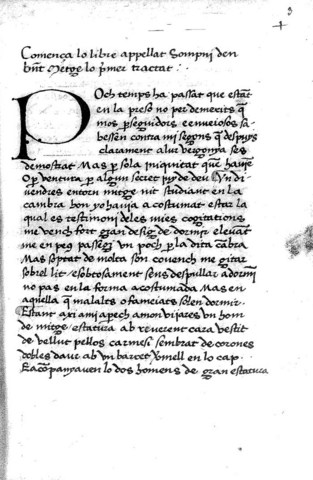 3
Comença lo libre appellat Sompnj den
bn̄t Metge lo p̄mer tractat :
Poch temps ha passat que estāt
en la preso no per demerits q̄
mos p̄seguidors e enueiosos sa-
bessen contra mi segons q̄ despuys
clarament a lur vergonya ses
demostrat Mas p̄ sola iniquitat que hauiē
O p̄ ventura p̄ algun secret juy de deu Vn di
uendres entorn mitge nit studiant en la
cambra hon yo hauia acostumat estar la
qual es testimonj deles mies cogitations
me vench fort gran desig de dormir e leuāt
me en peg passegi vn poch p̄ la dita cābra
Mas soptat de molta son couench me gitar
sobrel lit e sobtosament sens despullar adormi
no pas en la forma acostumada Mas en
aquella q̄ malalts o famejats solen dormir
Estant axi ami aparech amon vijares vn hom
de mitge estatura ab reuerent cara vestit
de vellut pellos carmesi sembrat de corones
dobles daur ab vn barret v̄mell en lo cap
E acōpanyauen lo dos homens de gran estatura